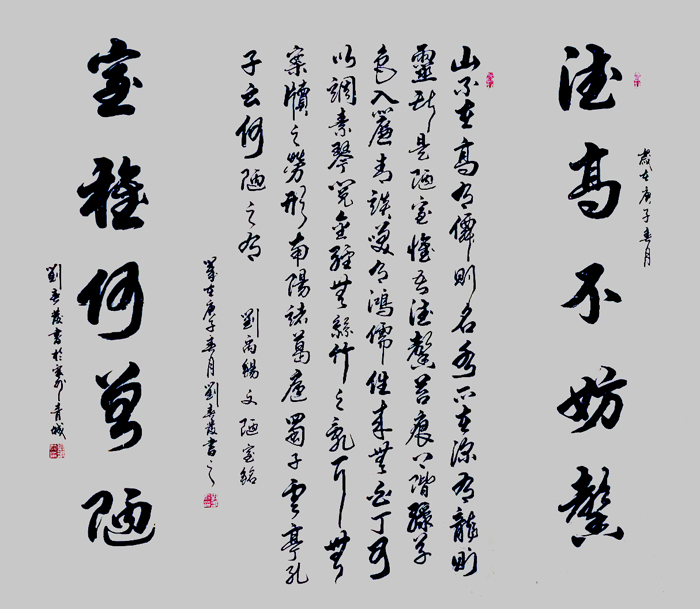 德高不妨馨
歲在庚子春月
山不在高有僊則名水不在深有龍則
靈斯是陋室惟吾德馨苔痕上階綠草
色入簾青談笑有鴻儒往來無白丁可
以調素琴閱金經無絲竹之亂耳無
案牘之勞形南陽諸葛廬蜀子雲亭孔
子云何陋之有 劉禹錫文陋室銘
歲在庚子春月劉春發書之
室雅何曾陋
劉春發書於青城